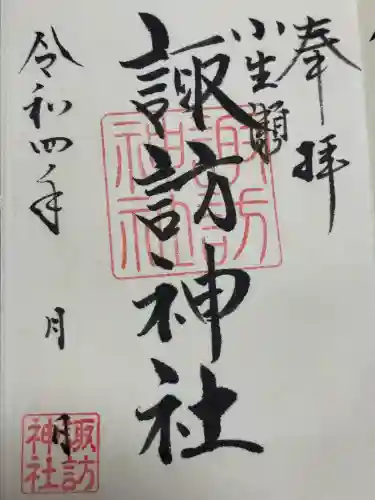 奉拝
小生瀬
諏訪神社
諏訪神社
令和四年 月 日
諏訪神社